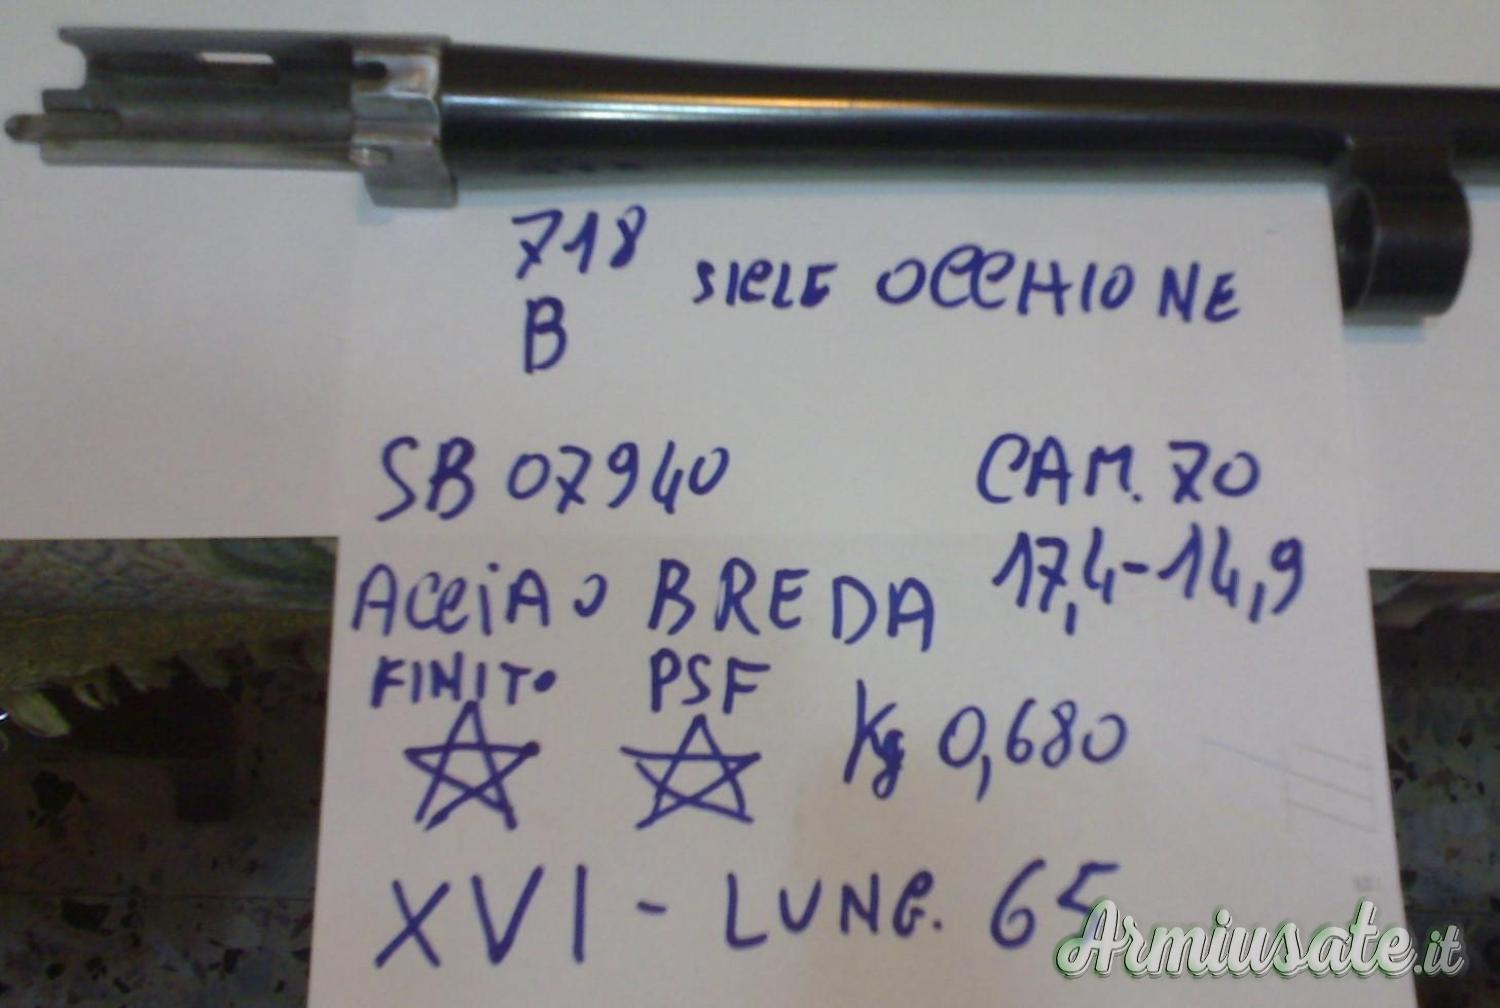 718 SIELE OCCHIONE
B
SB 07940 CAM. 70
ACCIAIO BREDA 17,4-14,9
FINITO PSF Kg 0,680
XVI - LUNG. 65
Armiusate.it